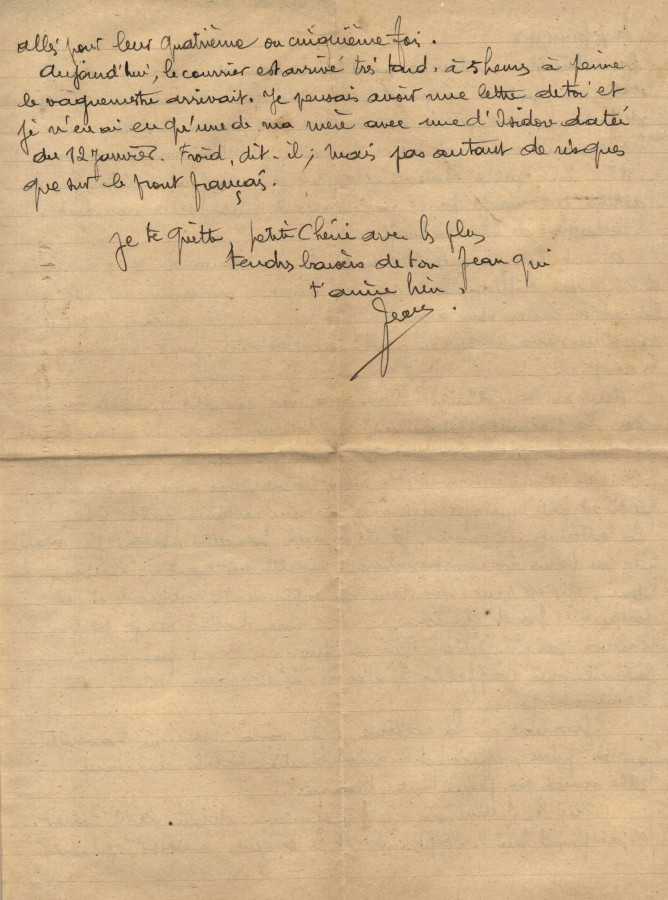 allés pour leur quatrième ou cinquième fois.
Aujourd'hui, le courrier est arrivé très tard, à 5 heures à peine
le vaguemestre arrivait. Je pensais avoir une lettre de toi et
je n'en ai eu qu'une de ma mère avec une d'Isidore datée
du 12 Janvier. Froid, dit-il; mais pas autant de risques
que sur le front français.
Je te quitte, petite Chérie avec les plus
tendres baisers de ton Jean qui
t'aime bien.
Jean.